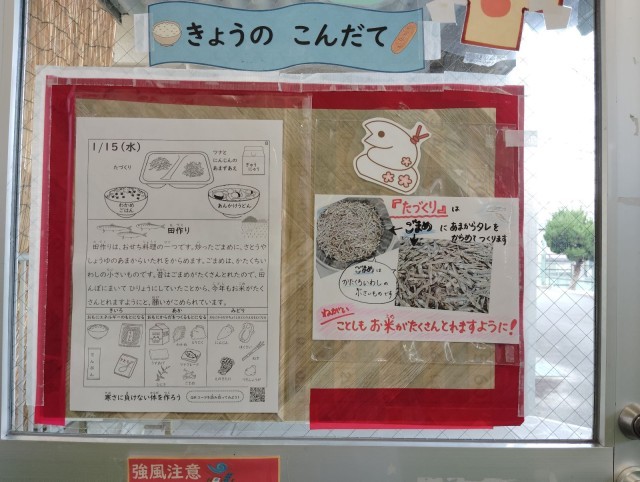 きょうの こんだて
1/15(水)
たづくり
ツナと
にんじんの
あまずあえ
わかめ
ごはん
あんかけうどん
田作り
田作りは、おせち料理の一つです。炒ったごまめに、さとうや
しょうゆのあまからいたれをからめます。ごまめは、かたくちい
わしの小さいものです。昔はごまめがたくさんとれたので、田
んぼにまいて ひりょうにしていたことから、今年もお米がたく
さんとれますようにと、願いがこめられています。
きいろ
あか
みどり
寒さに負けない体を作ろう
『たづくり』は
ごまめ に あまからタレを
からめて つくります
ごまめ は
かたくちいわし の
小さいものです
ねがい
ことしも お米がたくさんとれますように!
強風注意